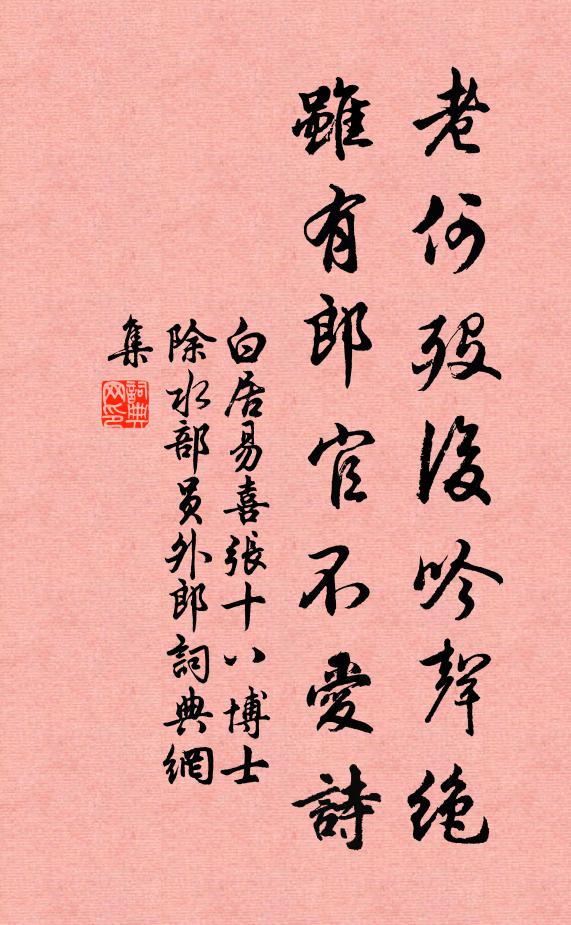 老何歿後吟聲絶
雖有郎官不愛詩
白居易喜張十八博士
除水部員外郎詞典網
集
詞典网印